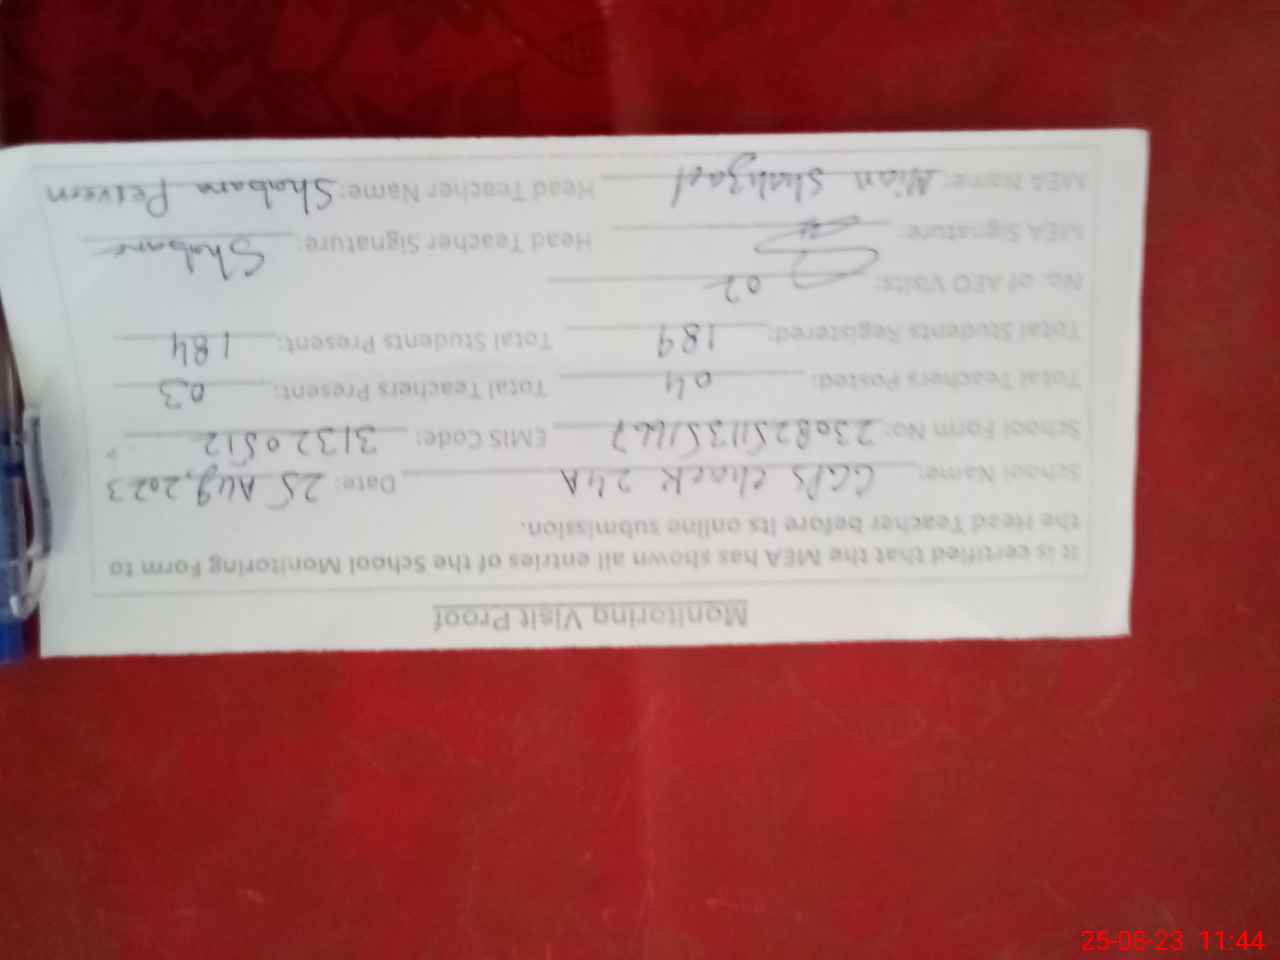 Monitoring Visit Proof
It is certified that the MEA has shown all entries of the School Monitoring Form to
the Head Teacher before its online submission.
School Name: GGPS Chack 24A Date: 25 Aug, 2023
School Form No: 230825113511667 EMIS Code: 31320512
Total Teachers Posted: 04 Total Teachers Present: 03
Total Students Registered: 189 Total Students Present: 184
No. of AEO Visits: 02
MEA Signature: Head Teacher Signature: Shabana
MEA Name: Mian Shahzad Head Teacher Name: Shabana Perveen
25-08-23 11:44